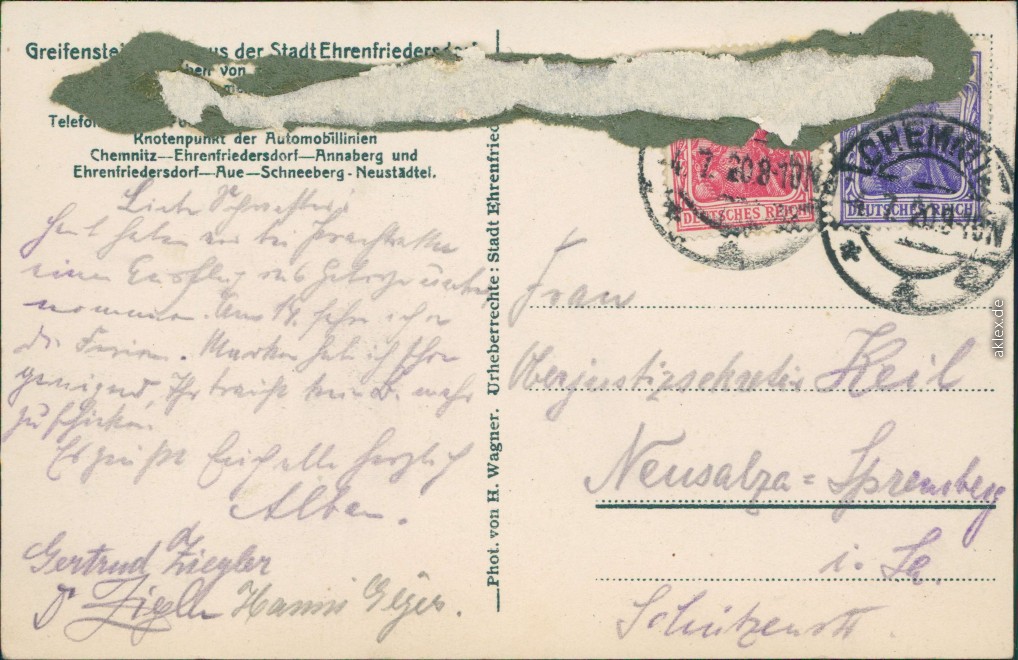 Greifenstei us der Stadt Ehrenfriedersdorf
ben von
Telefon
Knotenpunkt der Automobillinien
Chemnitz—Ehrenfriedersdorf—Annaberg und
Ehrenfriedersdorf—Aue—Schneeberg-Neustädtel.
Liebe Schwester!
haben wir bei
einen Ausflug ins Gebirge unter
nommen. Am 14.
die Ferien. Marken hab ich schon
genügend, Ihr braucht keine mehr
zu schicken.
Es grüßt Euch alle herzlich
Gertrud Ziegler
Hanni
Phot. von H. Wagner. Urheberrechte: Stadt Ehrenfried
DEUTSCHES REICH
DEUTSCHES REICH
CHEMNITZ
7. 20 8-10N
Frau
Oberjustizsekretär Keil
Neusalza=Spremberg
i. Sa.
Schützenstr.
aklex.de